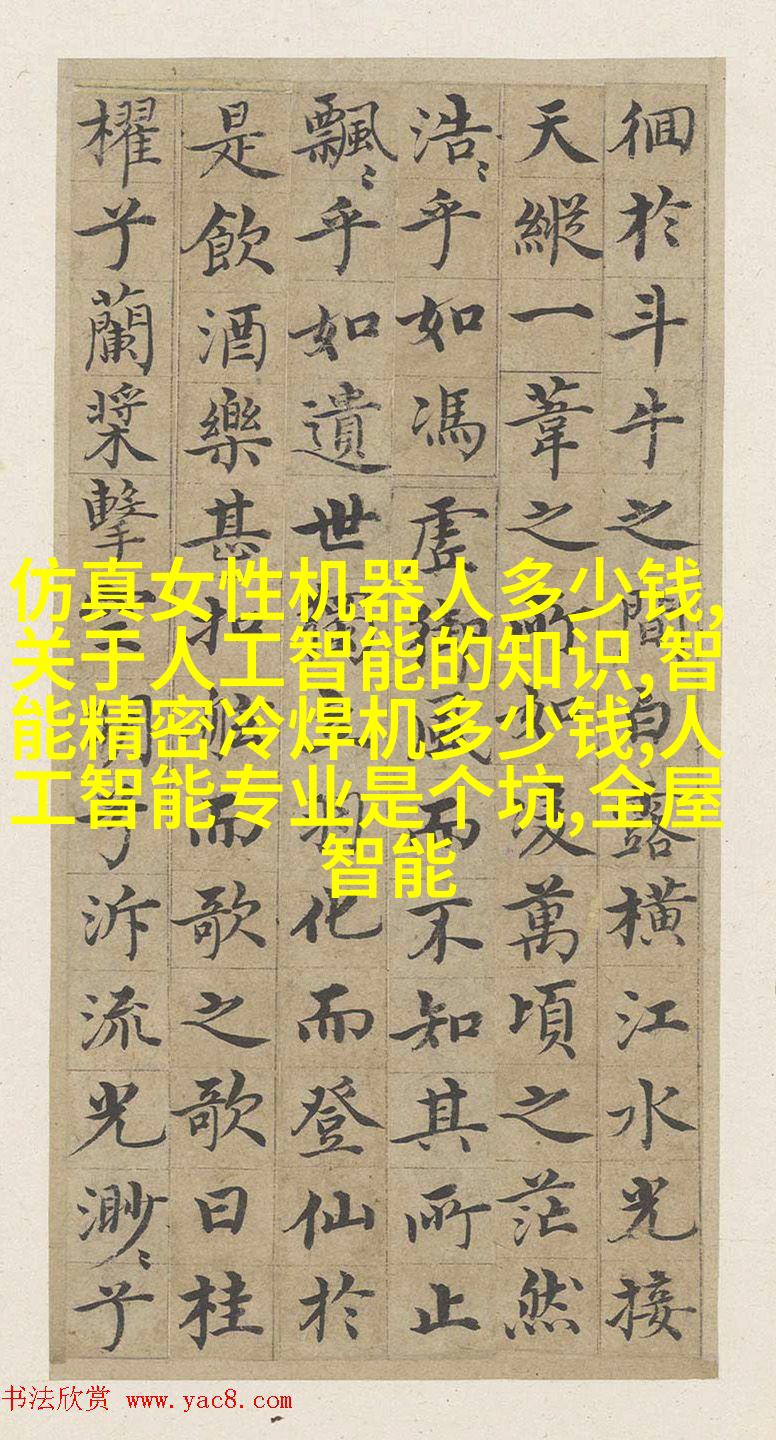 徊於斗牛之間白露橫江水光接
天縱一葦之所如凌萬頃之茫然
浩〻乎如馮虛御風而不知其所止
飄〻乎如遺世獨立羽化而登仙於
是飲酒樂甚扣舷而歌之歌曰桂
櫂兮蘭槳擊空明兮泝流光渺〻兮
仿真女性机器人多少钱,
关于人工智能的知识,智
能精密冷焊机多少钱,人
工智能专业是个坑,全屋
智能
书法欣赏 www.yac8.com